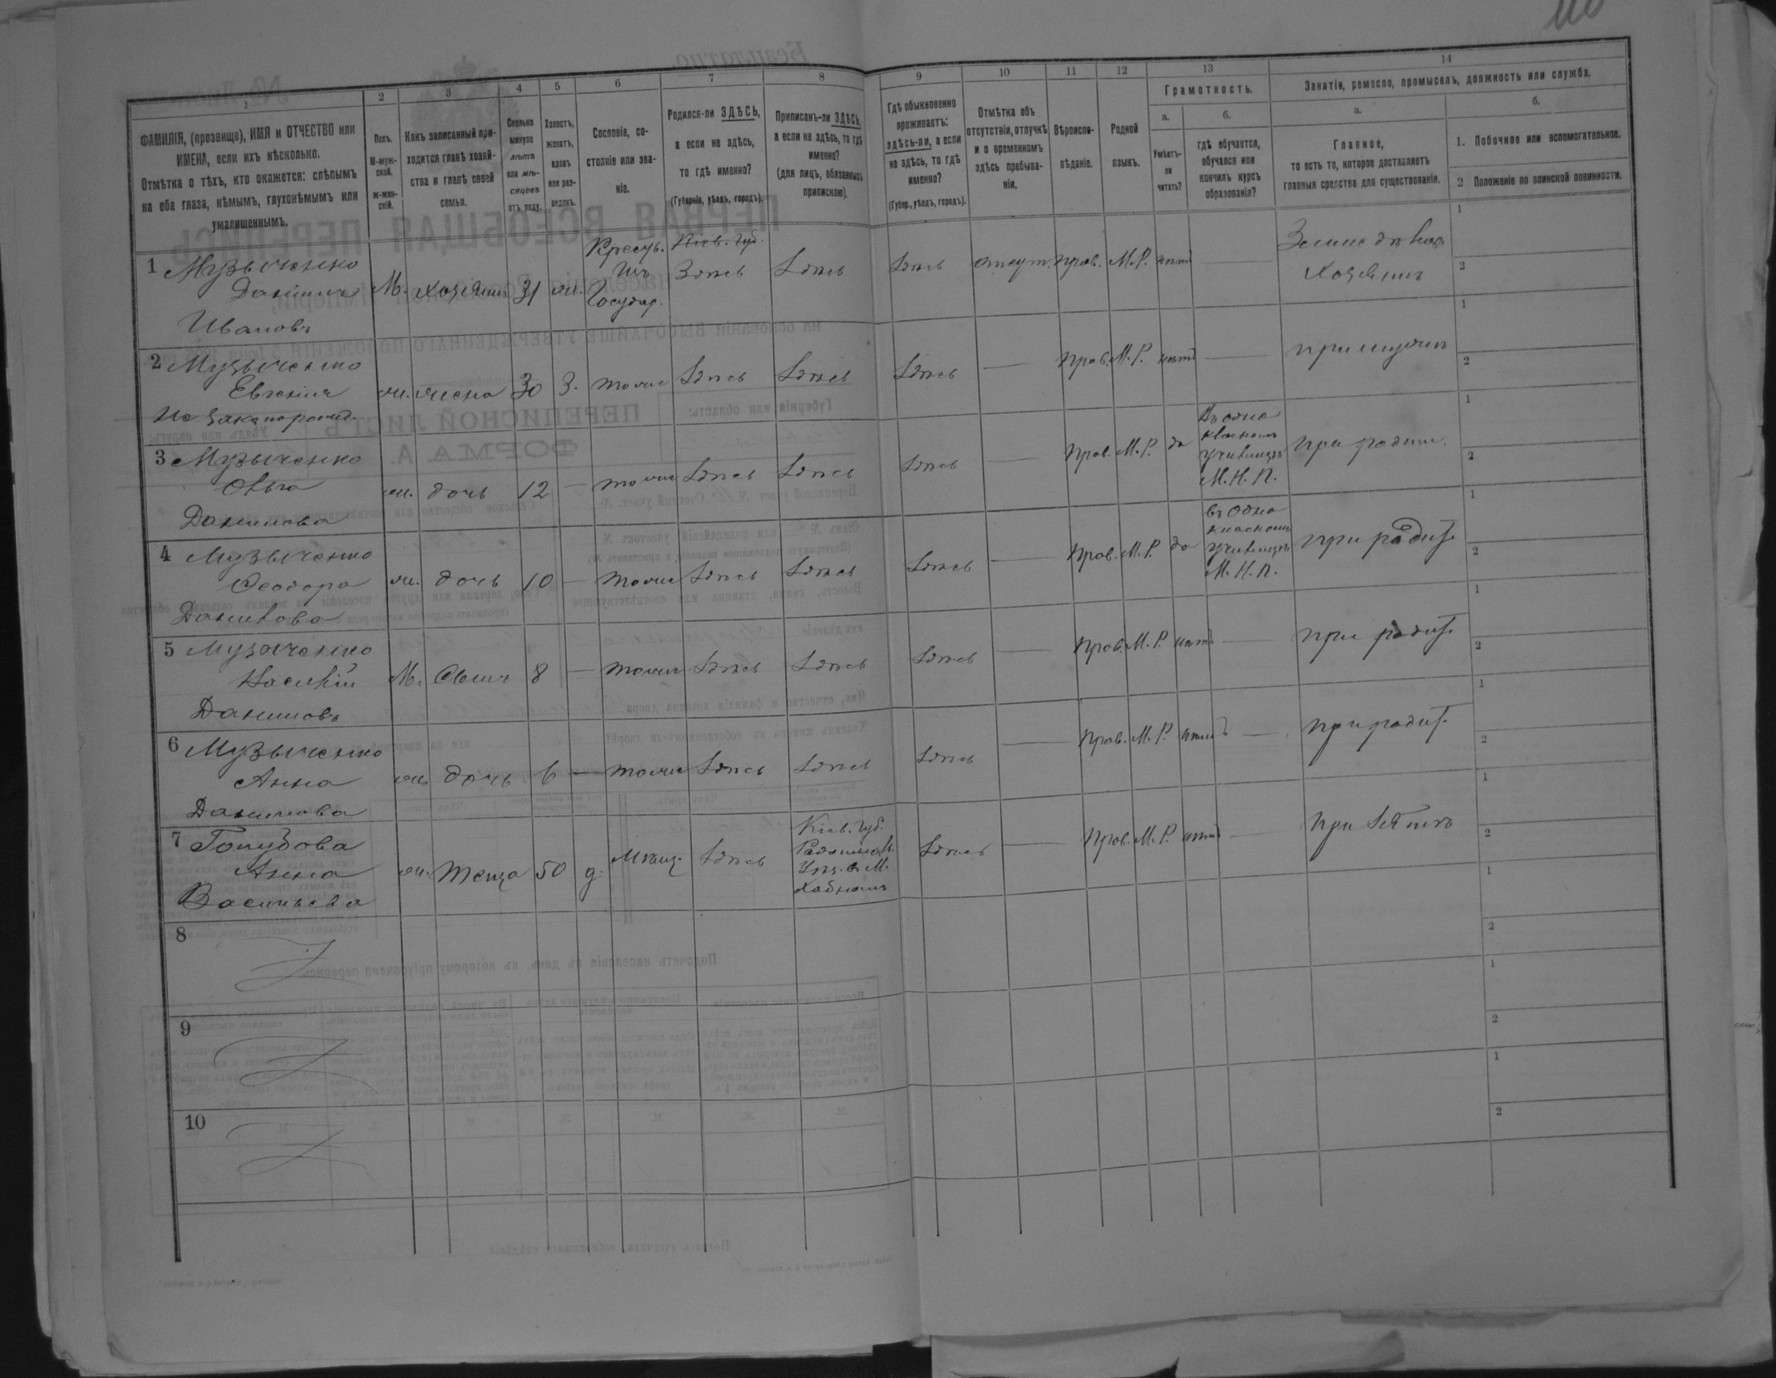 110
1
2
3
4
5
6
7
8
9
10
11
12
13
14
ФАМИЛІЯ, (прозвище), ИМЯ и ОТЧЕСТВО или
ИМЕНА, если ихъ нѣсколько.
Отмѣтка о тѣхъ, кто окажется: слѣпымъ
на оба глаза, нѣмымъ, глухонѣмымъ или
умалишеннымъ.
Полъ.
М-муж-
ской.
ж-жен-
скій.
Какъ записанный при-
ходится главѣ хозяй-
ства и главѣ своей
семьи.
Сколько
минуло
лѣтъ
или мѣ-
сяцевъ
отъ роду.
Холостъ,
женатъ,
вдовъ
или раз-
веденъ.
Сословіе, со-
стояніе или зва-
ніе.
Родился-ли ЗДѢСЬ,
а если не здѣсь,
то гдѣ именно?
(Губернія, уѣздъ, городъ).
Приписанъ-ли ЗДѢСЬ,
а если не здѣсь, то гдѣ
именно?
(для лицъ, обязанныхъ
припискою).
Гдѣ обыкновенно
проживаетъ:
здѣсь-ли, а если
не здѣсь, то гдѣ
именно?
(Губер., уѣздъ, городъ).
Отмѣтка объ
отсутствіи, отлучкѣ
и о временномъ
здѣсь пребыва-
ніи.
Вѣроиспо-
вѣданіе.
Родной
языкъ.
Грамотность.
а.
б.
Умѣетъ-
ли
читать?
гдѣ обучается,
обучался или
кончилъ курсъ
образованія?
Занятіе, ремесло, промыселъ, должность или служба.
а.
б.
Главное,
то есть то, которое доставляетъ
главныя средства для существованія.
1. Побочное или вспомогательное.
2 Положеніе по воинской повинности.
1 Музыченко
Даніилъ
Ивановъ
М. хозяинъ 31 ж.
Крестья.
изъ
Государ.
Кіев. Губ.
Здѣсь
Здѣсь Здѣсь отсут. прав. М.Р. нѣтъ
Хозяинъ
2 Музыченко
Евгенія
ж. жена 30 З. тоже Здѣсь Здѣсь Здѣсь — прав. М.Р. нѣтъ — при мужѣ
3 Музыченко
Ольга
Данилова
ж. дочь 12 — тоже Здѣсь Здѣсь Здѣсь — Прав. М.Р. да
Въ одно
класном
училищѣ
М. Н. П.
при родит.
4 Музыченко
Феодора
Данилова
ж. дочь 10 — тоже Здѣсь Здѣсь Здѣсь — Прав. М.Р. да
въ одно
класном
училищѣ
М. Н. П.
при родит.
5 Музыченко
Василій
Даниловъ
М. Сынъ 8 — тоже Здѣсь Здѣсь Здѣсь — Прав. М.Р. нѣтъ — при родит.
6 Музыченко
Анна
Данилова
ж. дочь 6 — тоже Здѣсь Здѣсь Здѣсь — Прав. М.Р. нѣтъ — при родит.
7 Голубова
Анна
Васильева
ж. теща 50 В. Мѣщ. Здѣсь
Кіев. Губ.
Радомысл.
Уѣз. в М.
Хабномъ
Здѣсь — Прав. М.Р. нѣтъ — при зятѣ
8
9
10